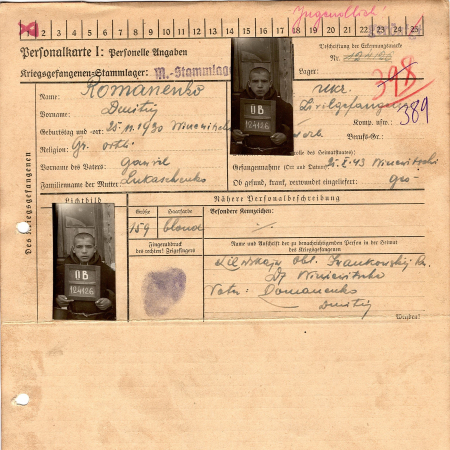 "Jugendlich"
2 3 4 5 6 7 8 9 10 11 12 13 14 15 16 17 18 19 20 21 22 23 24 25
Personalkarte I: Personelle Angaben
Beschriftung der Erkennungsmarke
Nr.
Kriegsgefangenen-Stammlager: M.-Stammlag
Lager:
398
389
Des Kriegsgefangenen
Name: Romanenko
Ukr.
Vorname: Dmitrij
Zivilgefangen
Komp. usw.:
Geburtstag und -ort: 25.11.1930
Berufs-Gr.:
Religion: Gr. orth.
Vorname des Vaters: Gawril
Gefangennahme (Ort und Datum):
Familienname der Mutter: Lukaschenko
Ob gesund, krank, verwundet eingeliefert: ges.
ÜB
124126
Lichtbild
Nähere Personalbeschreibung
Größe
Haarfarbe
Besondere Kennzeichen:
159
blond
Fingerabdruck
des rechten! Zeigefingers
Name und Anschrift der zu benachrichtigenden Person in der Heimat
des Kriegsgefangenen
ÜB
124126
Obl.
Vater: Domanenko
Dmitrij
Wenden!